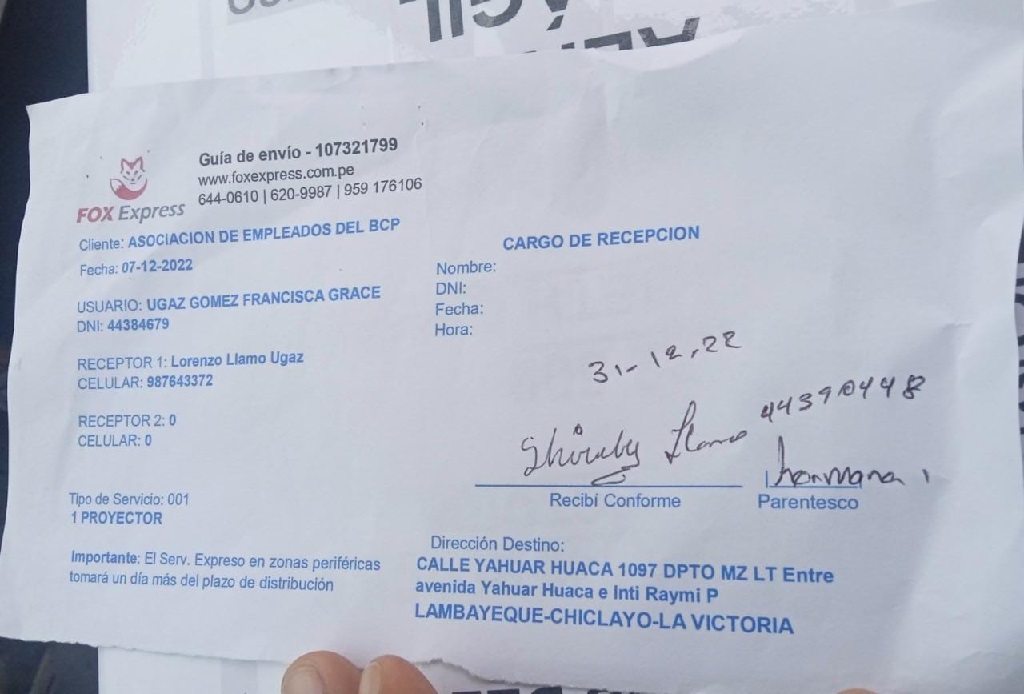 Guía de envío - 107321799
www.foxexpress.com.pe
644-0610 | 620-9987 | 959 176106
FOX Express
Cliente: ASOCIACION DE EMPLEADOS DEL BCP
Fecha: 07-12-2022
USUARIO: UGAZ GOMEZ FRANCISCA GRACE
DNI: 44384679
RECEPTOR 1: Lorenzo Llamo Ugaz
CELULAR: 987643372
RECEPTOR 2: 0
CELULAR: 0
Tipo de Servicio: 001
1 PROYECTOR
Importante: El Serv. Expreso en zonas periféricas
tomará un día más del plazo de distribución
CARGO DE RECEPCION
Nombre:
DNI:
Fecha:
Hora:
31-12,22
Shirley Llamo 44390448
hermana
Recibí Conforme
Parentesco
Dirección Destino:
CALLE YAHUAR HUACA 1097 DPTO MZ LT Entre
avenida Yahuar Huaca e Inti Raymi P
LAMBAYEQUE-CHICLAYO-LA VICTORIA